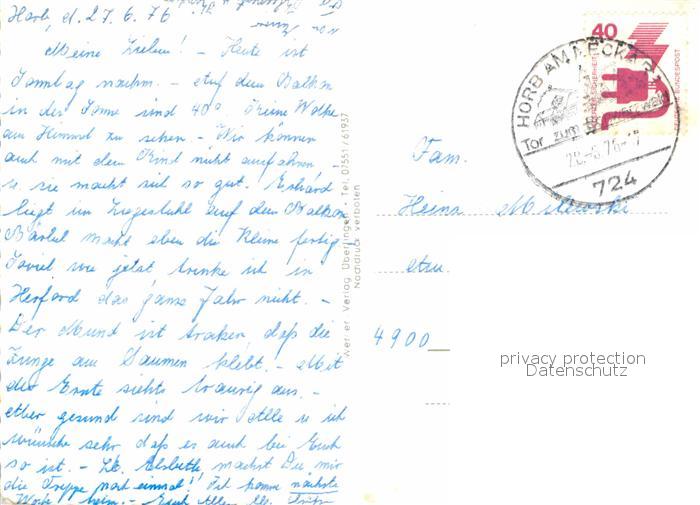 Horb, d. 27.6.76
Meine Lieben! - Heute ist
Sonntag nachm. - Auf dem Balkon
in der Sonne sind 40°. Keine Wolke
am Himmel zu sehen. - Wir können
auch mit dem Kind nicht ausfahren -
u. sie macht sich so gut. Eckhard
liegt im Liegestuhl auf dem Balkon
Bärbel macht eben die Kleine fertig -
Soviel wie jetzt trinke ich in
Herford das ganze Jahr nicht. -
Der Mund ist trocken, daß die
Zunge am Gaumen klebt. - Mit
der Ernte siehts traurig aus. -
Aber gesund sind wir Alle u. ich
wünsche sehr, daß es auch bei Euch
so ist. - Lb. Elsbeth, machst Du mir
die Treppe noch einmal! Ich komme nächste
Woche heim. - Euch Allen lb.
Werner Verlag Überlingen - Tel. 07551/61957
Nachdruck verboten
40
DEUTSCHE BUNDESPOST
HORB AM NECKAR
Tor zum
28.-6.76-17
724
Fam.
Heinz
4900
privacy protection
Datenschutz